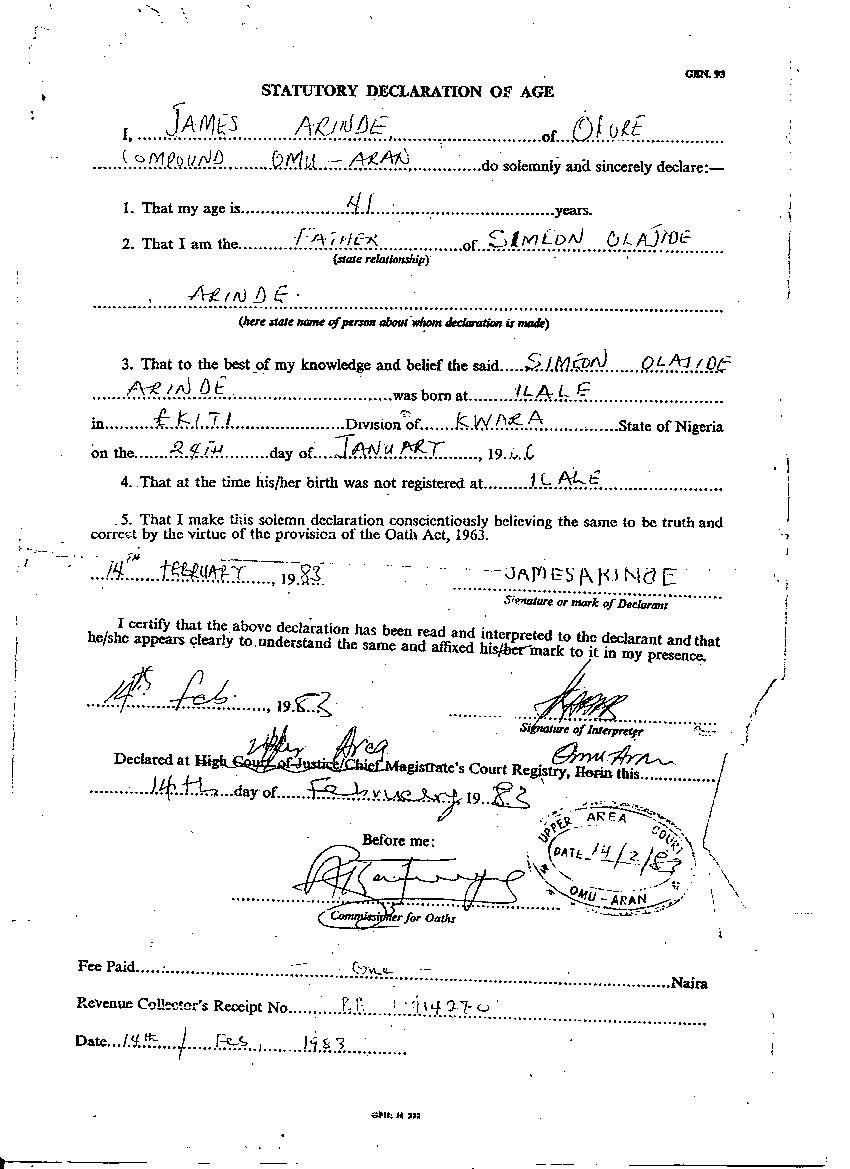 GEN. 93
STATUTORY DECLARATION OF AGE
I, JAMES ARINDE, of OLURE
COMPOUND OMU-ARAN do solemnly and sincerely declare:—
1. That my age is 41 years.
2. That I am the FATHER of SIMEON OLAJIDE
(state relationship)
ARINDE.
(here state name of person about whom declaration is made)
3. That to the best of my knowledge and belief the said SIMEON OLAJIDE
ARINDE was born at ILALE
in EKITI Division of KWARA State of Nigeria
on the 24TH day of JANUARY, 1966
4. That at the time his/her birth was not registered at ILALE
5. That I make this solemn declaration conscientiously believing the same to be truth and
correct by the virtue of the provision of the Oath Act, 1963.
14TH FEBRUARY, 1983 JAMES ARINDE
Signature or mark of Declarant
I certify that the above declaration has been read and interpreted to the declarant and that
he/she appears clearly to understand the same and affixed his/her mark to it in my presence.
14th Feb., 1983
Signature of Interpreter
Upper Area Omu Aran
Declared at High Court of Justice/Chief Magistrate's Court Registry, Ilorin this
14th day of February 1983
Before me:
UPPER AREA COURT
DATE 14/2/83
OMU-ARAN
Commissioner for Oaths
Fee Paid One Naira
Revenue Collector's Receipt No.
Date 14th/Feb, 1983